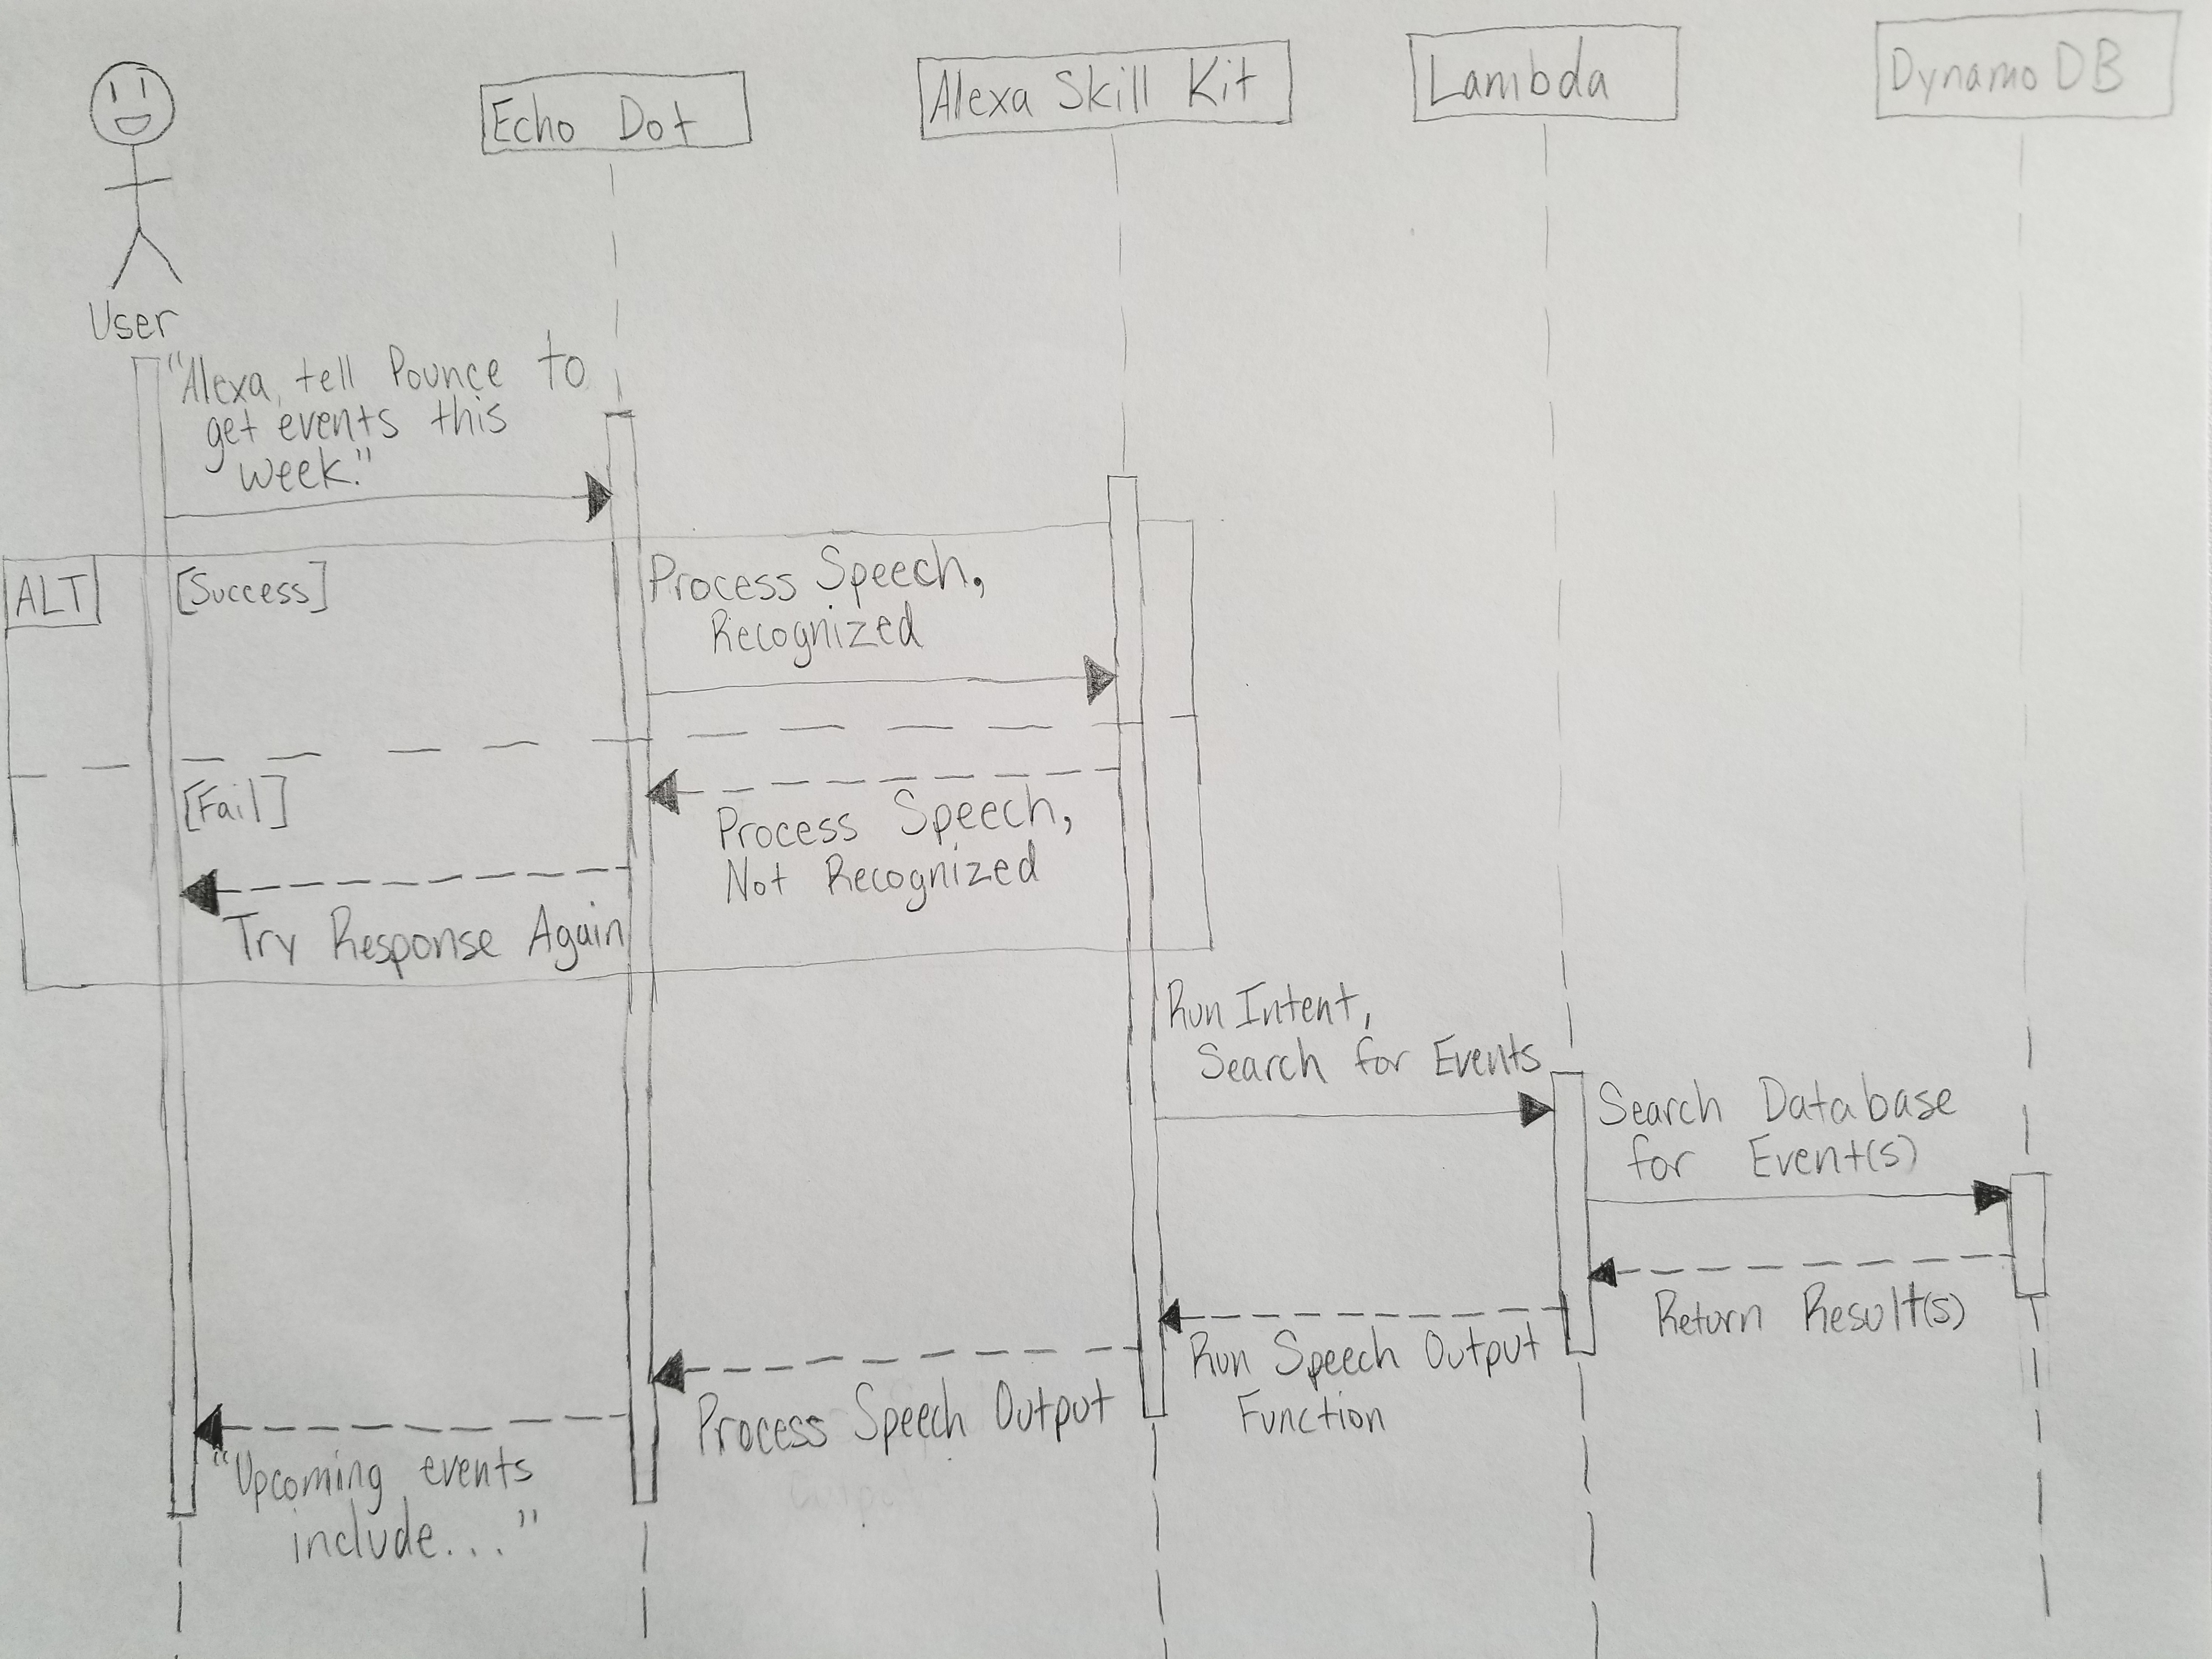 Echo Dot
Alexa Skill Kit
Lambda
Dynamo DB
User
"Alexa, tell Pounce to
get events this
week."
ALT
[Success]
Process Speech,
Recognized
[Fail]
Process Speech,
Not Recognized
Try Response Again
Run Intent,
Search for Events
Search Database
for Event(s)
Return Result(s)
Run Speech Output
Function
Process Speech Output
"Upcoming events
include..."